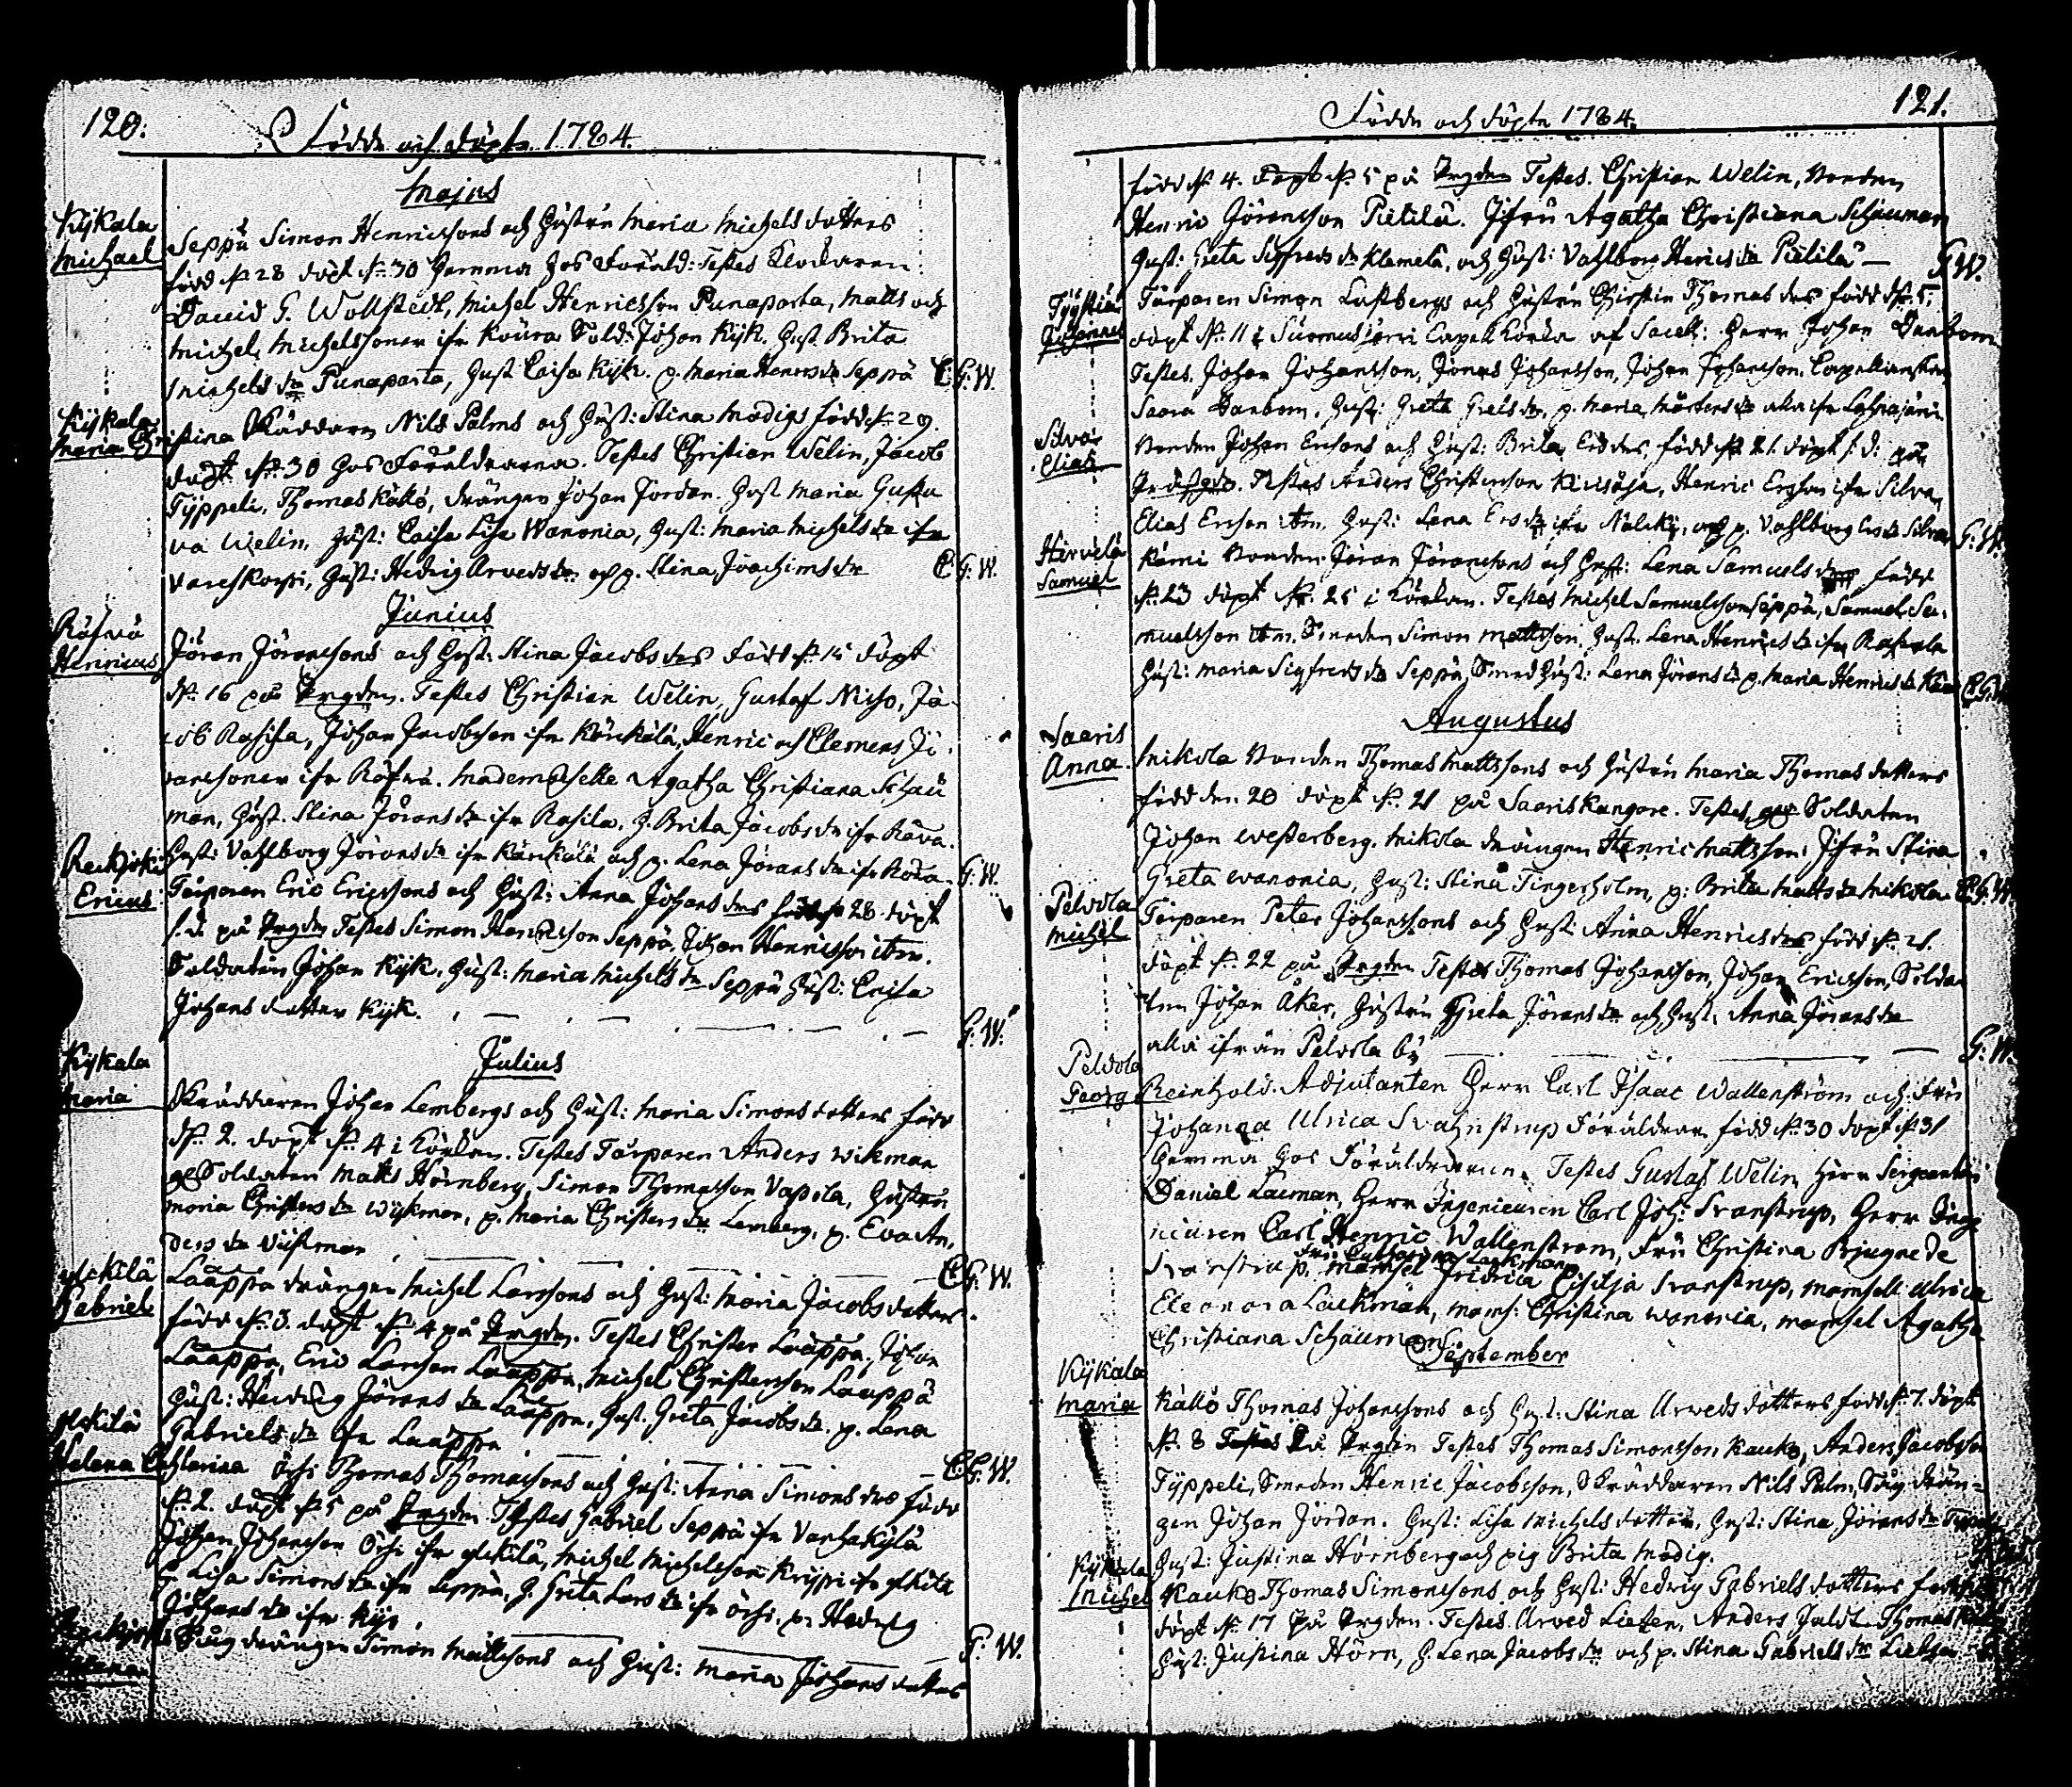 120.
Födde och döpte 1784.
Majus
Kÿkala
Michael
Seppä Simon Henricssons och Hustru Maria Michelsdotters
född d. 28 döpt d. 30 hemma hos Föräld: Testes Klockaren
David G. Wollstedt, Michel Henricsson Punaparta, Matts och
Michel Michelssoner ifr Koura Sold: Johan Kijk. Hust Brita
Michels dr Punaparta, Hust Caisa Kijk. p. Maria Henrics dr Seppä G. W.
Kÿkala
Maria Christina Skräddaren Nils Palms och Hust: Stina Modigs född d. 29.
döpt d. 30 hos Föräldrarna. Testes Christian Welin, Jacob
Tÿppeli, Thomas Kallo, drängen Johan Jordan. Hust Maria Gusta
va Welin, Hust: Caisa Lisa Wanonia, Hust: Maria Michels dr ifr
Hust: Hedvig Arveds dr och p. Stina Joachims dr G. W.
Junius
Henricus
Jöran Jöranssons och Hust. Stina Jacobs drs född d. 15 döpt
d. 16 på Prgden. Testes Christian Welin, Gustaf Ja-
cob Rasila, Johan Jacobsson ifr Kärkälä, Henric och Clemens Jö
ranssoner ifr Mademoiselle Agatha Christiana Schau
man, Hust. Stina Jörans dr ifr Rasila. H. Brita Jacobs dr ifr
Hust: Vahlborg Jörans dr ifr Kärkälä och p. Lena Jörans dr ifr G. W.
Ericus
Torparen Eric Ericssons och Hust: Anna Johans drs född d. 28 döpt
s. d. på Prgden Testes Simon Henricsson Seppä, Johan Henricsson itm.
Soldaten Johan Kijk. Hust: Maria Michels dr Seppä Hust: Caisa
Johans dotter Kijk. G. W.
Julius
Kÿkala
Maria
Skräddaren Johan Lembergs och Hust: Maria Simons dotters född
d. 2. döpt d. 4 i Kÿrkan. Testes Torparen Anders Wikman
Soldaten Matts Hörnberg, Simon Thomasson Vapola, Hustru
Maria Christers dr Wikman, p. Maria Christers dr Lemberg, p. Eva An-
ders dr Wikman G. W.
Gabriel
Laappa drängen Michel Larssons och Hust: Maria Jacobs dotters
född d. 3. döpt d. 4 på Prgden. Testes Christer Laappa, Johan
Laappa, Eric Larsson Laappa, Michel Christersson Laappa
Hust: Hedvig Jörans dr Laappa, Hust. Greta Jacobs dr. p. Lena
Gabriels dr ifr Laappa G. W.
Helena Catharina Thomas Thomassons och Hust: Anna Simons drs född
d. 2. döpt d. 5 på Prgden Testes Gabriel Seppä ifr Vanhakÿlä
Johan Johansson ifr Michel Michelsson Krippi ifr
Lisa Simons dr ifr Seppä, H. Greta Lars dr ifr p. Hedvig
Johans dr ifr G. W.
drängen Simon Mattssons och Hust: Maria Johans dotters
121.
Födde och döpte 1784.
född d. 4. döpt d. 5 på Prgden Testes. Christian Welin, Bonden
Henric Göransson Pietilä. Jfru Agatha Christiana Schauman
Hust: Greta Sigfreds dr Klemelä, och Hust: Vahlborg Henrics dr Pietilä — G. W.
Johannes
Torparen Simon Lustbergs och Hustru Christin Thomas drs född d. 5.
döpt d. 11 i Suomusjärvi Capell Kÿrka af Sacell: Herr Johan Danbom
Testes. Johan Johansson, Jonas Johansson, Johan Johansson. Capellanskan
Saara Danbom. Hust: Greta dr. p. Maria Mårtens dr alla ifr Lahnajärvi
Silva
Elias
Bonden Johan Ericsons och Hust: Brita drs, född d. 21. döpt s. d. på
Prästgdn. Testes Anders Christersson Kirisoja, Henric Ersson ifr Silva,
Elias Ersson itm. Hust: Lena Ers dr ifr och p. Vahlborg Ers dr Silva G. W.
Hirvelä
Samuel
Kärni Bonden Jöran Jöranssons och Hust: Lena Samuels drs född
d. 23 döpt d. 25 i Kÿrkan. Testes Michel Samuelsson Seppä, Samuel Sa-
muelsson itm. Smeden Simon Mattsson. Hust. Lena Henrics dr ifr
Hust: Maria Sigfreds dr Seppä, Smed Hust: Lena Jörans dr p. Maria Henrics dr G. W.
Augustus
Saaris
Anna.
Mikola Bonden Thomas Mattssons och Hustru Maria Thomas dotters
född den. 20 döpt d. 21 på Saariskangare. Testes, Soldaten
Johan Westerberg. Mikola drängen Henric Mattsson. Jfru Stina
Greta Wanonia, Hust: Stina Tingerholm, p: Brita Matts dr Mikola G. W.
Peldola
Michel
Torparen Peter Johanssons och Hust: Anna Henrics drs född d. 21.
döpt d. 22 på Prgden Testes Thomas Johansson, Johan Ericsson, Solda
ten Johan Åker, Hustru Greta Jörans dr och Hust. Anna Jörans dr
alla ifrån Peldola by G. W.
Peldola
Georg Reinhold. Adjutanten Herr Carl Isaac Wallenström och Fru
Johanna Ulrica Svanstrup Föräldrar född d. 30 döpt d. 31
hemma hos Föräldrarna. Testes Gustaf Welin, Herr Sergeanten
Daniel Lacman, Herr Ingenieuren Carl Joh: Svanstrup, Herr Inge
nieuren Carl Henric Wallenström, Fru Christina Bruguede
Fru Catharina Lackman
Svanstrup. Mamsel Fridrica Cisilja Svanstrup, Mamsell Ulrica
Eleonora Lackman, Mams: Christina Wanonia, Mamsel Agatha
Christiana Schauman
September
Kÿkala
Maria
Kallo Thomas Johanssons och Hust: Stina Arveds dotters född d. 7. döpt
d. 8 på Prgden Testes Thomas Simonsson Kauko, Anders Jacobsson
Tÿppeli, Smeden Henric Jacobsson, Skräddaren Nils Palm, Såg drän-
gen Johan Jordan. Hust: Lisa Michels dotter, Hust: Stina Jörans dr
Hust: Justina Hörnberg och pig Brita Modig.
Kÿkala
Michel
Kauko Thomas Simonssons och Hust: Hedvig Gabriels dotters född
döpt d. 17 på Prgden. Testes Arved Lieten, Anders Thomas
Hust: Justina Hörn, H. Lena Jacobs dr och p. Stina Gabriels dr